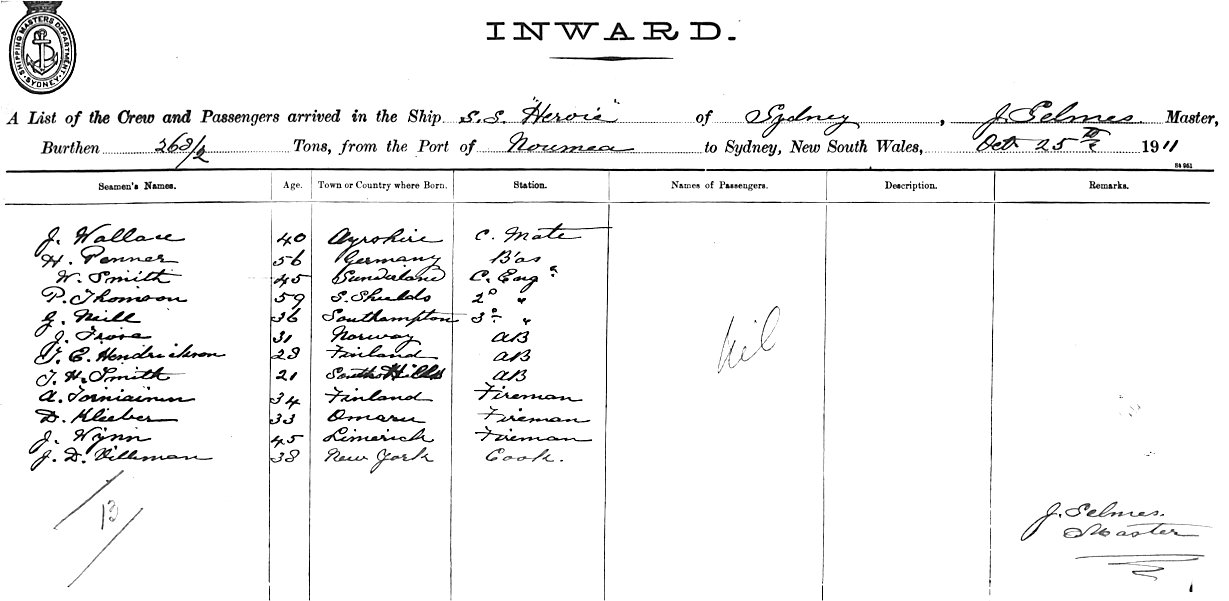 SHIPPING MASTERS DEPARTMENT
SYDNEY
INWARD.
A List of the Crew and Passengers arrived in the Ship S.S. "Herois" of Sydney, J. Selmes Master,
Burthen 268/2 Tons, from the Port of Noumea to Sydney, New South Wales, Oct 25th 1911
Seamen's Names. Age. Town or Country where Born. Station. Names of Passengers. Description. Remarks.
J. Wallace 40 Ayrshire C. Mate
H. Penner 56 Germany B'as
W. Smith 45 Sunderland C. Engr
P. Thomson 59 S. Shields 2d "
G. Neill 36 Southampton 3d "
J. Frose 31 Norway AB
T. E. Hendrickson 28 Finland AB
T. H. Smith 21 AB
Nil
A. Torniainen 34 Finland Fireman
D. Klieber 33 Omaru Fireman
J. Wynn 45 Limerick Fireman
J. D. Villiman 38 New York Cook.
13
J. Selmes.
Master